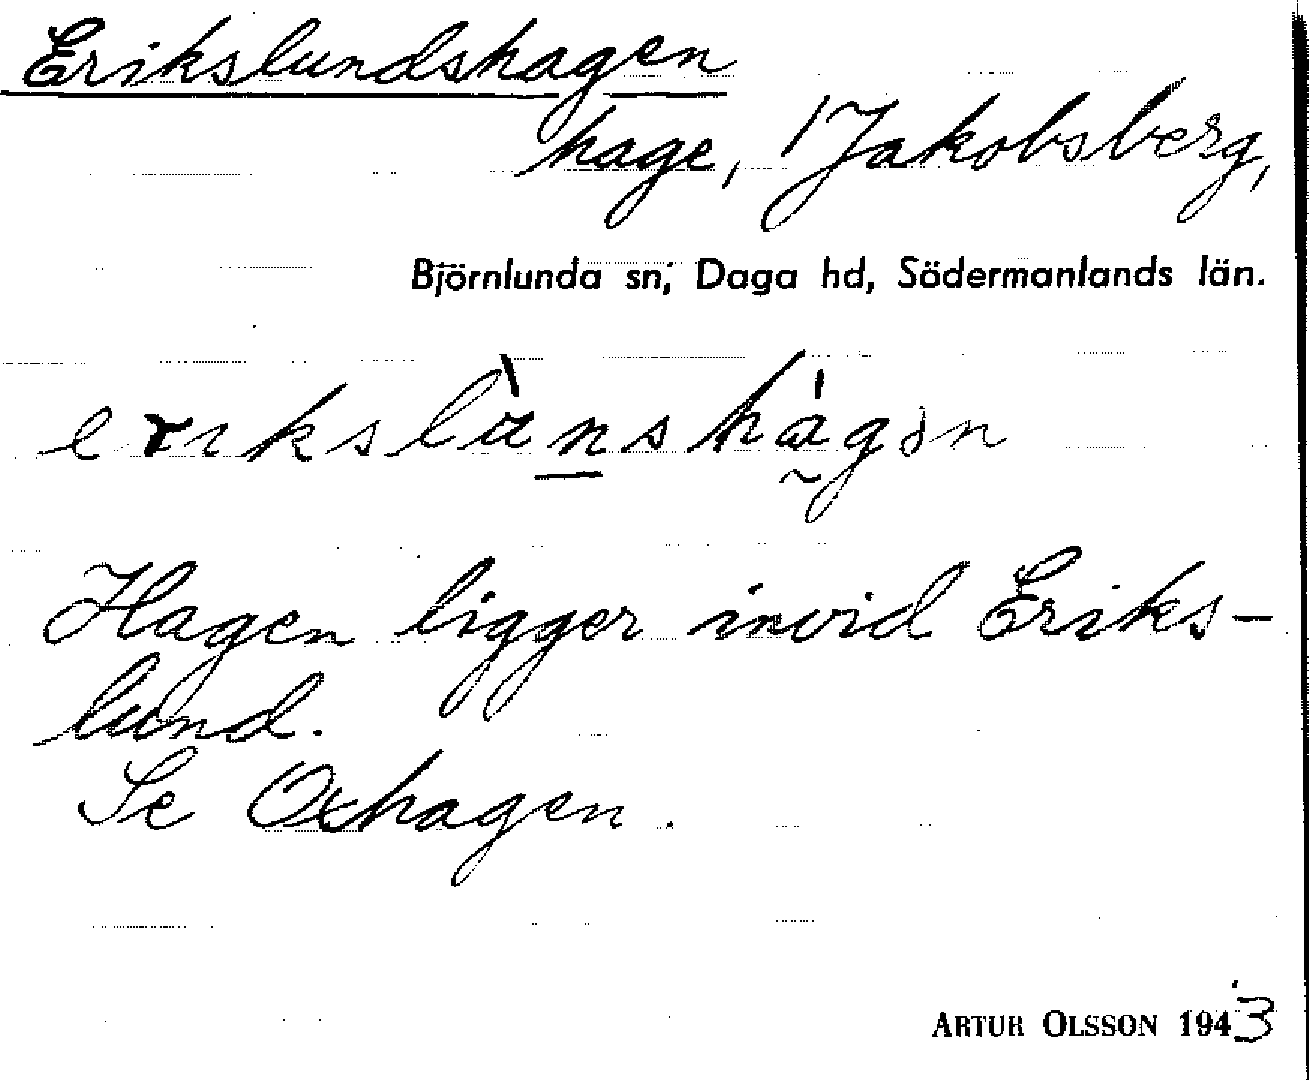 Erikslundshagen
hage, 1 Jakobsberg,
Björnlunda sn, Daga hd, Södermanlands län.
Hagen ligger invid Eriks-
lund.
Se Oxhagen.
ARTUR OLSSON 1943